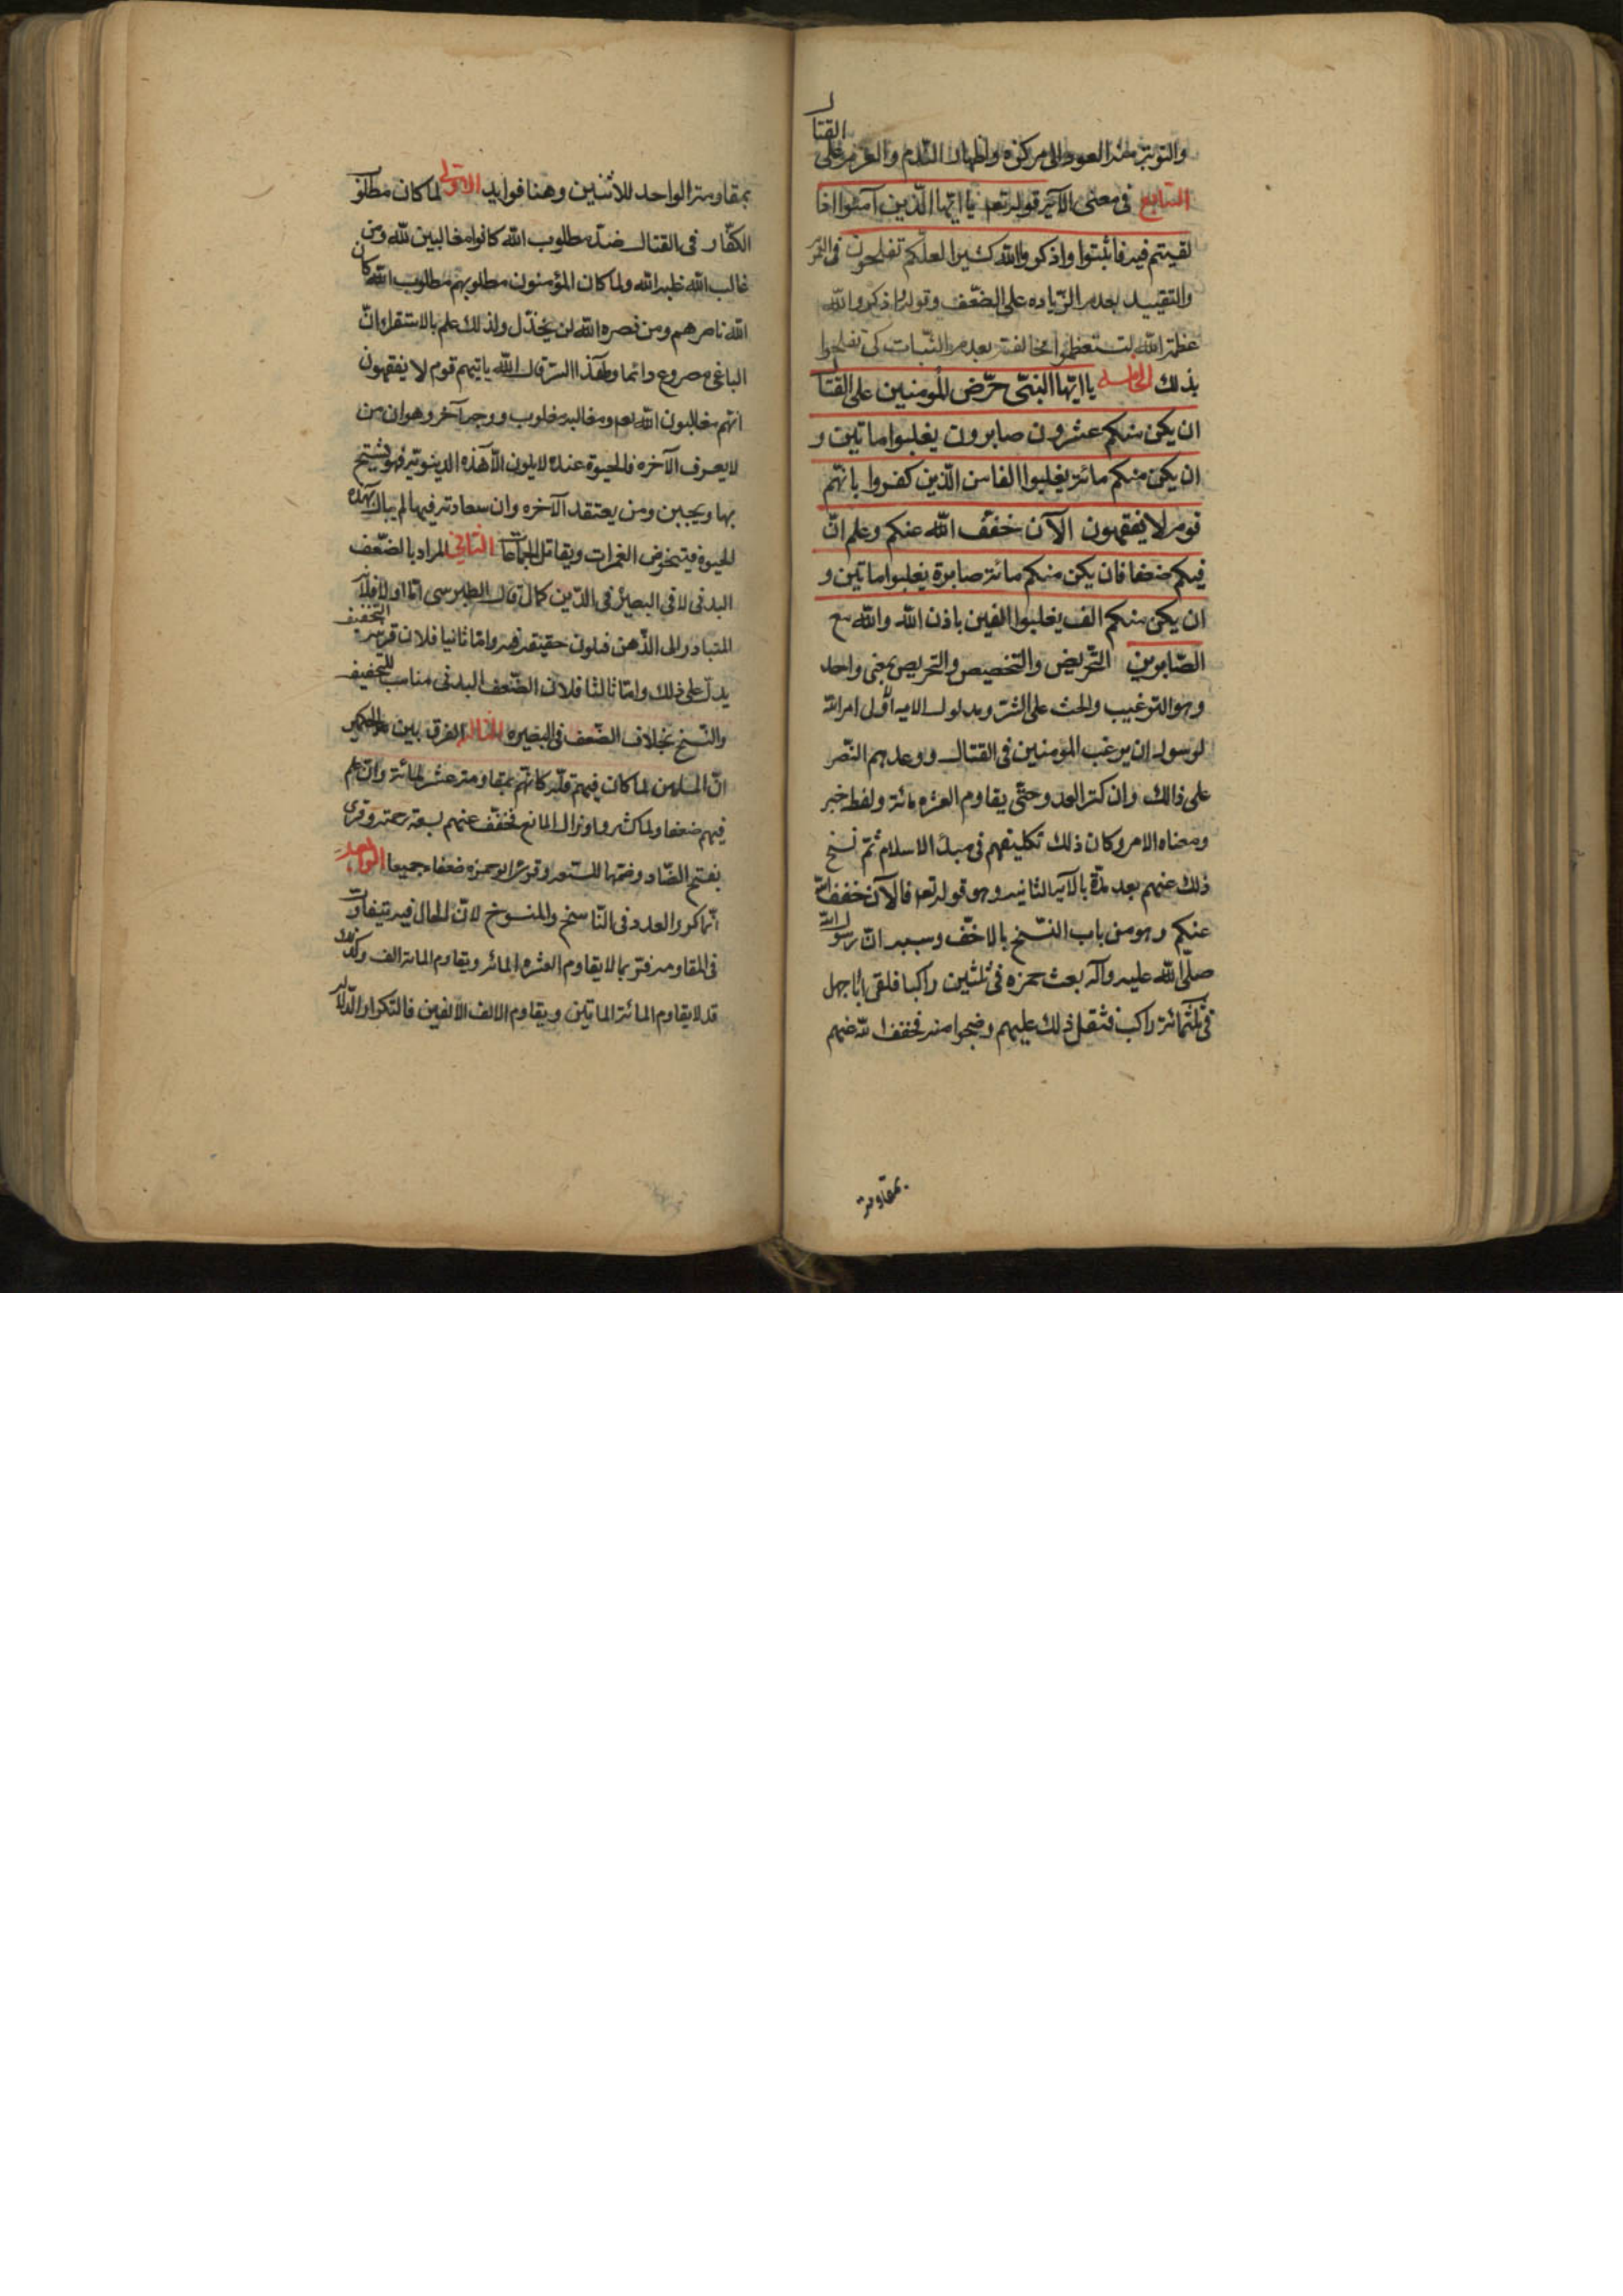 والتوبة منه العود الى مركزه واظهار الندم والعزم على القتال
السابع فى معنى الآية قوله تعه يا ايّها الّذين آمنوا اذا
لقيتم فيه فاثبتوا واذكروا الله كثيرا لعلّكم تفلحون
والتقييد بعدم الزّياده على الضّعف وقوله واذكروا الله
عظمة الله لتستعظموا مخالفته بعدم الثبات كى تفلحوا
بذلك الخامسه يا ايّها النبىّ حرّض المومنين على القتا
ان يكن منكم عشرون صابرون يغلبوا ماتين و
ان يكن منكم مائة يغلبوا الفا من الّذين كفروا بانّهم
قوم لا يفقهون الآن خفّف الله عنكم وعلم انّ
فيكم ضعفا فان يكن منكم مائة صابرة يغلبوا ماتين و
ان يكن منكم الف يغلبوا الفين باذن الله والله مع
الصّابرين التّحريض والتخصيص والتحريص بمعنى واحد
وهو الترغيب والحث على الشئ ومدلول الايه اوّل امر الله
لرسوله ان يرغب المومنين فى القتال ووعدهم النّصر
على ذالك وان كثر العدو حتّى يقاوم العشره مائة ولفظه خبر
ومعناه الامر وكان ذلك تكليفهم فى مبدء الاسلام ثمّ نسخ
ذلك عنهم بعد مدّة بالآية الثانيه وهو قوله تعه فالآن خفف الله
عنكم وهو من باب النّسخ بالاخفّ وسببه انّ رسول الله
صلّى الله عليه وآله بعث حمزه فى ثلثين راكبا فلقى ابا جهل
فى ثلثمائة راكب فثقل ذلك عليهم وضجوا منه فخفف الله عنهم
بمقاومة
بمقاومة الواحد للاثنين وهنا فوايد الاولى لما كان مطلوب
الكفّار فى القتال ضدّ مطلوب الله كانوا مغالبين لله ومن
غالب الله غلبه الله ولما كان المؤمنون مطلوبهم مطلوب الله كان
الله ناصرهم ومن نصره الله لن يخذل ولذلك علم بالاستقراء انّ
الباغى مصروع دائما ولهذا السّر قال الله بانهم قوم لا يفقهون
انّهم مغالبون الله تعه ومغالبه مغلوب ووجه آخر وهو ان من
لا يعرف الآخره فالحيوة عنده لا يكون الّا هذه الدينويّه فهو يشح
بها ويجبن ومن يعتقد الآخره وان سعادته فيها لم يبال بهذه
الحيوة فيتخوض الغمرات ويقاتل الجماعات الثانى المراد بالضّعف
البدنى لا فى البصيرة فى الدّين كما قال الطبرسى امّا اولا فلانّه
المتبادر الى الذّهن فيكون حقيقه فيه وامّا ثانيا فلان قرينة التخفيف
يدلّ على ذلك وامّا ثالثا فلان الضّعف البدنى مناسب للتخفيف
والنّسخ بخلاف الضّعف فى البصيره الثالثه الفرق بين الحكمين
انّ المسلمين لما كان فيهم قلّه كانهم بمقاومة عشر لمائة وان علم
فيهم ضعفا ولما كثروا وزال المانع فخفّف عنهم بسعة رحمته وقرى
بفتح الضّاد وضمّها للسّبعه وقرئ ابو حمزه ضعفاء جميعا الرابعة
انّما كرّر العدد فى النّاسخ والمنسوخ لانّ الحال فيه يتفاوت
فى المقاومه فربّما لا يقاوم العشره المائه ويقاوم المائة الالف وكذلك
قد لا يقاوم المائة الماتين ويقاوم الالف الالفين فالتكرار للدّلالة